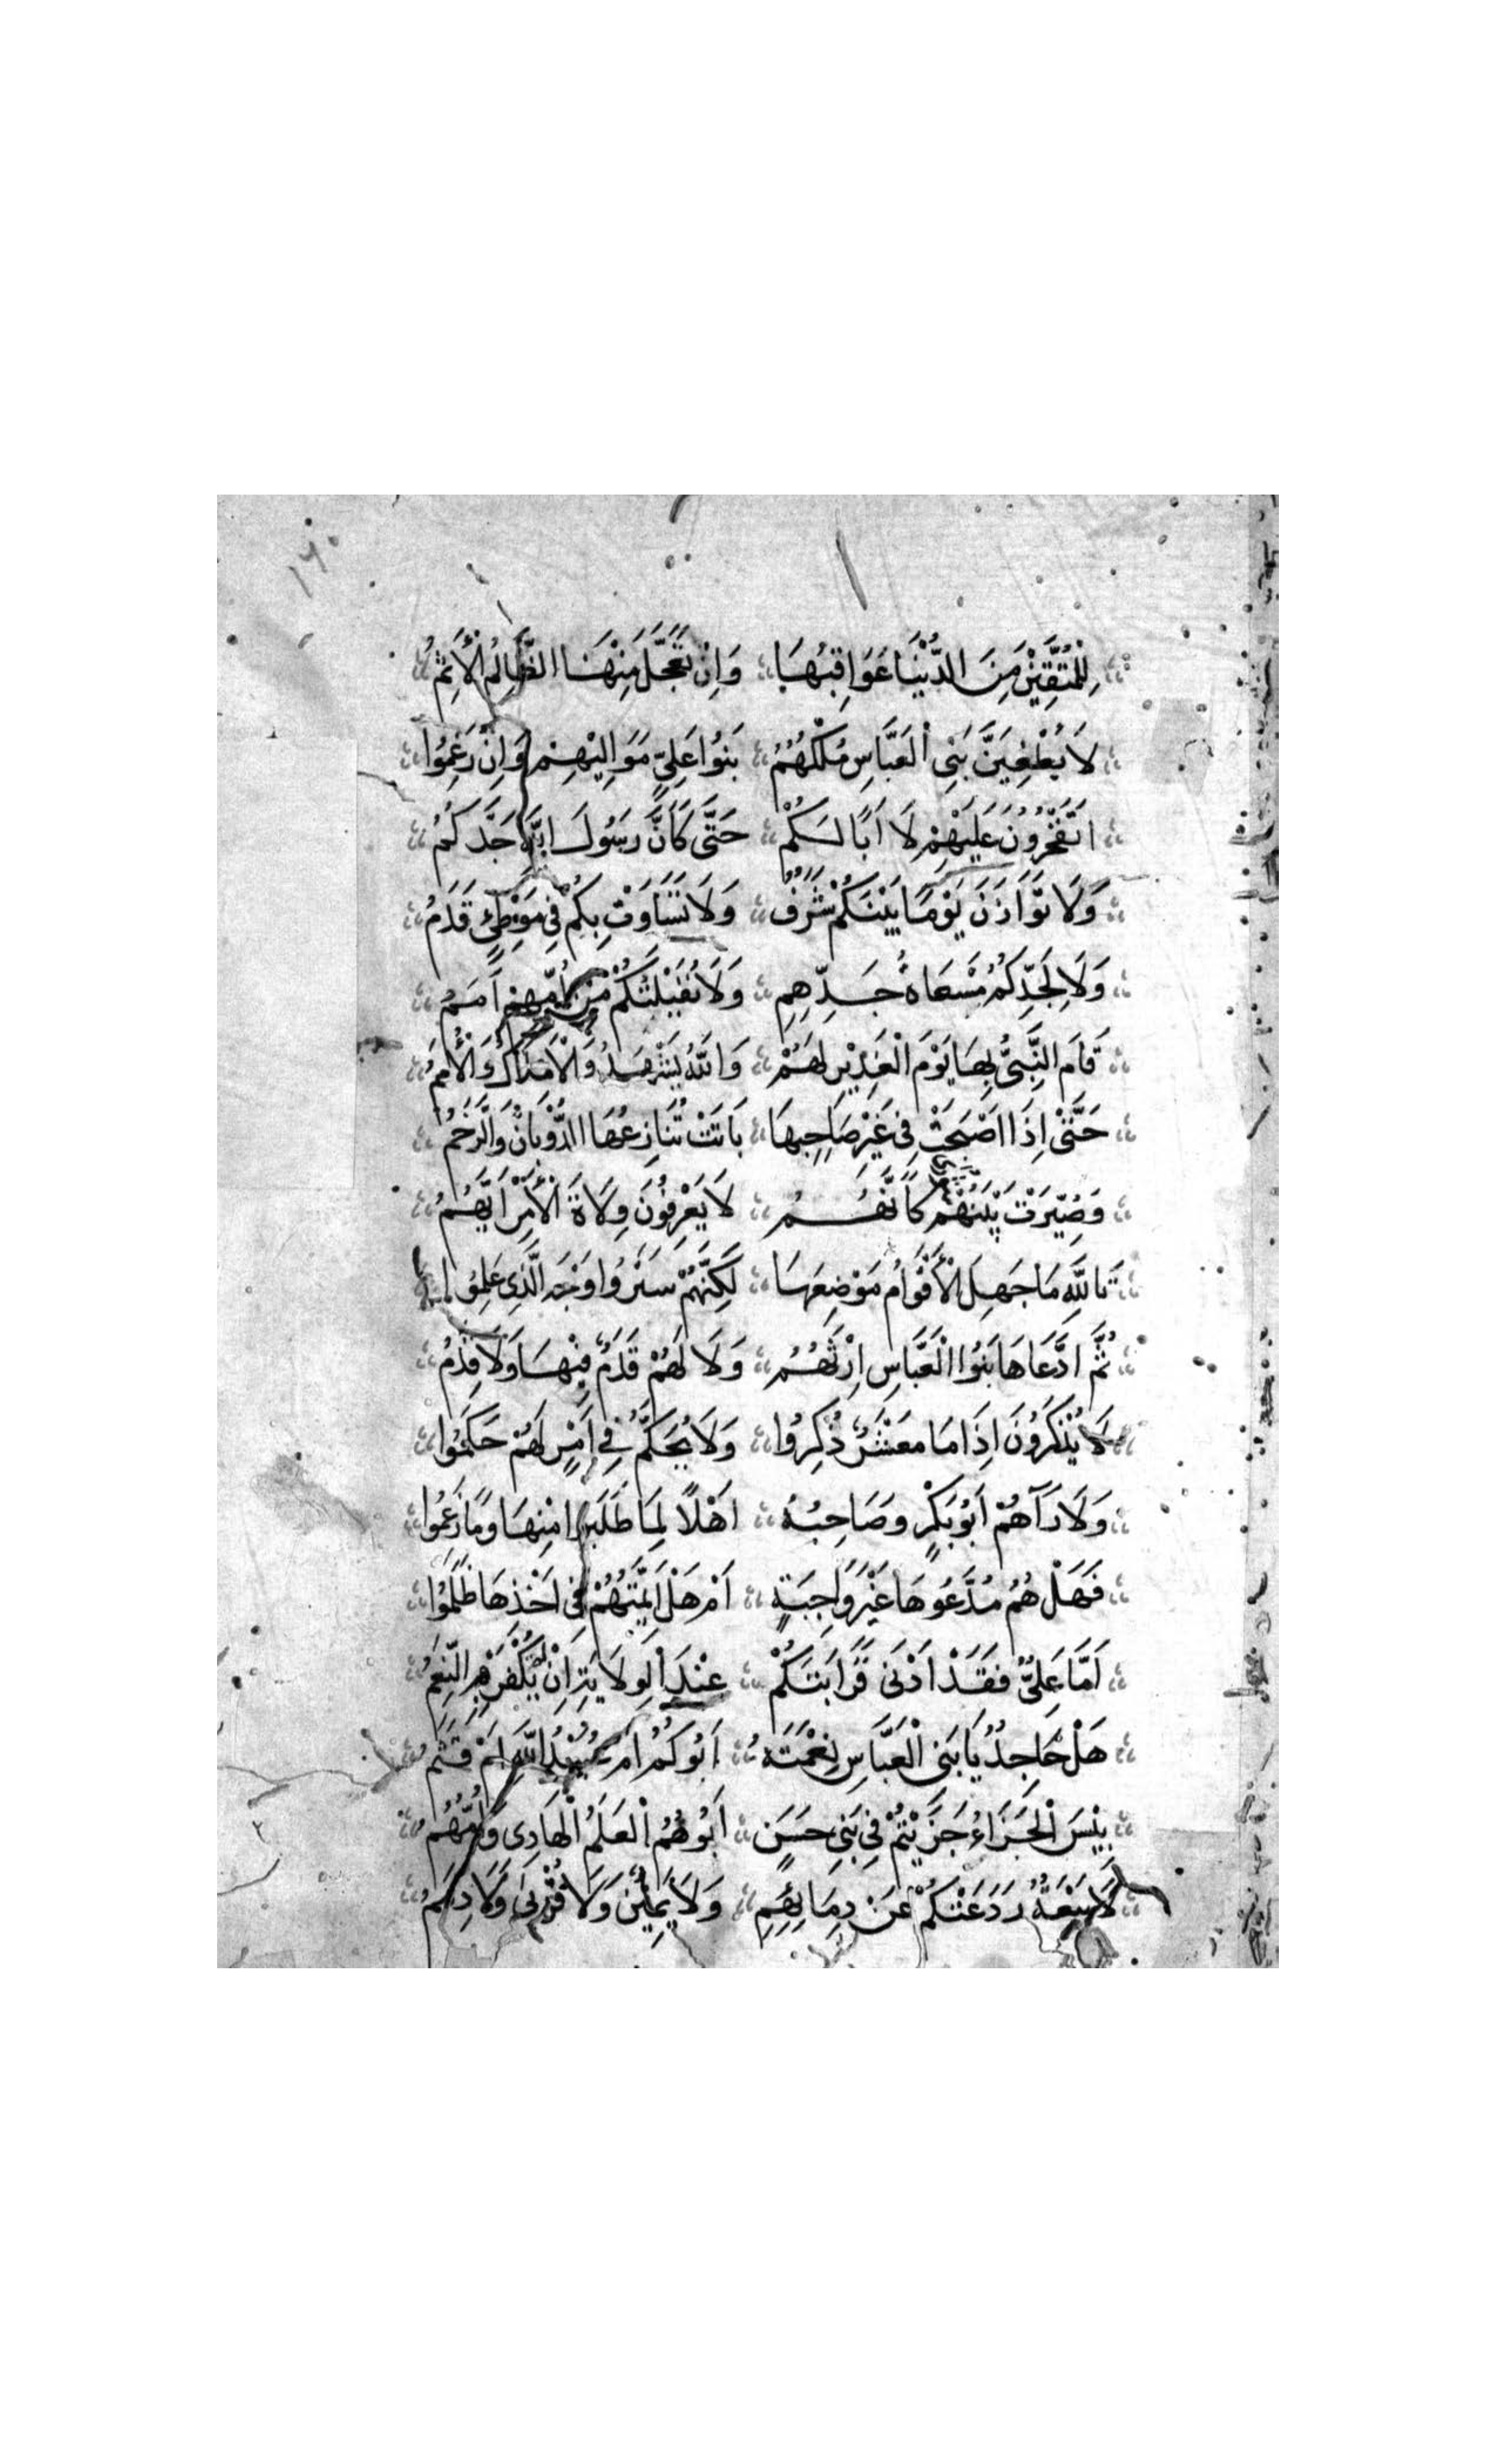 لِلْمُتَّقِيْنَ مِنَ الدُّنْيَا عَوَاقِبُهَا وَاِنْ تَعَجَّلَ مِنْهَا الظَّالِمُ الْأَثِمُ
لَا يُطْغِيَنَّ بَنِي الْعَبَّاسِ مُلْكُهُمُ بَنُوا عَلِيٍّ مَوَالِيْهِمْ وَاِنْ رَغِمُوا
اَتَفْخَرُونَ عَلَيْهِمْ لَا اَبًا لَكُمْ حَتَّى كَاَنَّ رَسُولَ اللّٰهِ جَدُّكُمُ
وَلَا تَوَازَنَ يَوْمًا بَيْنَكُمْ شَرَفٌ وَلَا تَسَاوَتْ بِكُمْ فِي مَوْطِئٍ قَدَمُ
وَلَا لِجَدِّكُمُ مَسْعَاةُ جَدِّهِمِ وَلَا نُفَيْلَتُكُمْ مِنْ اُمِّهِمْ اَمَمُ
قَامَ النَّبِيُّ بِهَا يَوْمَ الْغَدِيْرِ لَهُمْ وَاللّٰهُ يَشْهَدُ وَالْاَمْلَاكُ وَالْأُمَمُ
حَتَّى اِذَا اَصْبَحَتْ فِي غَيْرِ صَاحِبِهَا بَاتَتْ تُنَازِعُهَا الذُّؤْبَانُ وَالرَّخَمُ
وَصُيِّرَتْ بَيْنَهُمْ كَاَنَّهُمُ لَا يَعْرِفُونَ وِلَاةَ الْأَمْرِ اَيَّهُمُ
تَاللّٰهِ مَا جَهِلَ الْأَقْوَامُ مَوْضِعَهَا لَكِنَّهُمْ سَتَرُوا وَجْهَ الَّذِي عَلِمُوا
ثُمَّ ادَّعَاهَا بَنُوا الْعَبَّاسِ اِرْثَهُمُ وَلَا لَهُمْ قَدَمٌ فِيْهَا وَلَا قِدَمُ
لَا يُذْكَرُونَ اِذَا مَا مَعْشَرٌ ذُكِرُوا وَلَا يُحَكَّمُ فِي اَمْرٍ لَهُمْ حَكَمُوا
وَلَا رَآهُمْ اَبُو بَكْرٍ وَصَاحِبُهُ اَهْلًا لِمَا طَلَبُوا مِنْهَا وَمَا زَعَمُوا
فَهَلْ هُمُ مُدَّعُوهَا غَيْرَ وَاجِبَةٍ اَمْ هَلْ اَئِمَّتُهُمْ فِي اَخْذِهَا ظَلَمُوا
اَمَّا عَلِيٌّ فَقَدْ اَدْنَى قَرَابَتَكُمْ عِنْدَ الْوِلَايَةِ اِنْ لَمْ تُكْفَرِ النِّعَمُ
هَلْ جَاحِدٌ يَا بَنِي الْعَبَّاسِ نِعْمَتَهُ اَبُوكُمُ اَمْ عُبَيْدُ اللّٰهِ اَمْ قُثَمُ
بِئْسَ الْجَزَاءُ جَزَيْتُمْ فِي بَنِي حَسَنٍ اَبُوهُمُ الْعَلَمُ الْهَادِي وَاُمُّهُمُ
لَا بَيْعَةٌ رَدَعَتْكُمْ عَنْ دِمَائِهِمِ وَلَا يَمِيْنٌ وَلَا قُرْبَى وَلَا ذِمَمُ